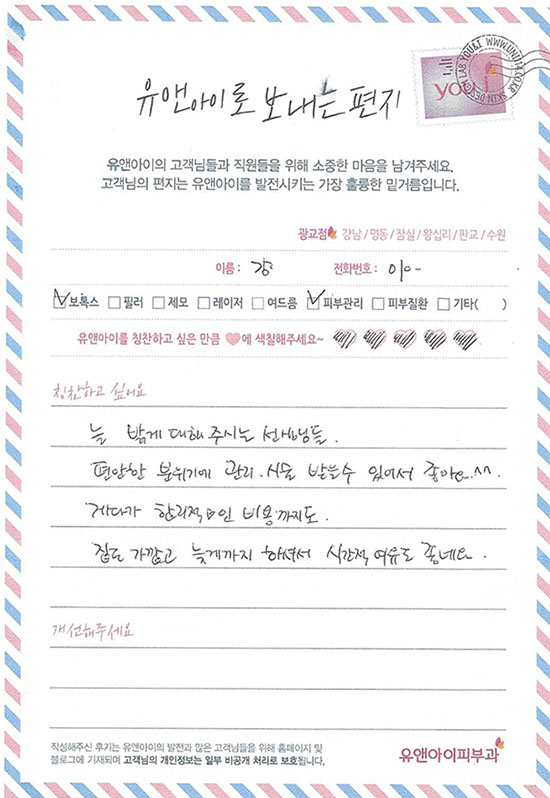 SKIN DESIGN LAB YOU&I WWW.UNI114.CO.KR
you i
유앤아이로 보내는 편지
유앤아이의 고객님들과 직원들을 위해 소중한 마음을 남겨주세요.
고객님의 편지는 유앤아이를 발전시키는 가장 훌륭한 밑거름입니다.
광교점 강남 / 명동 / 잠실 / 왕십리 / 판교 / 수원
이름 : 강 전화번호 : 010-
보톡스 필러 제모 레이저 여드름 피부관리 피부질환 기타( )
유앤아이를 칭찬하고 싶은 만큼 에 색칠해주세요~
칭찬하고 싶어요
늘 밝게 대해 주시는 선생님들.
편안한 분위기에 관리.시술 받을수 있어서 좋아요.^^
게다가 합리적인 비용까지도.
집도 가깝고 늦게까지 하셔서 시간적 여유도 좋네요.
개선해주세요
작성해주신 후기는 유앤아이의 발전과 많은 고객님들을 위해 홈페이지 및
블로그에 기재되며 고객님의 개인정보는 일부 비공개 처리로 보호됩니다.
유앤아이피부과